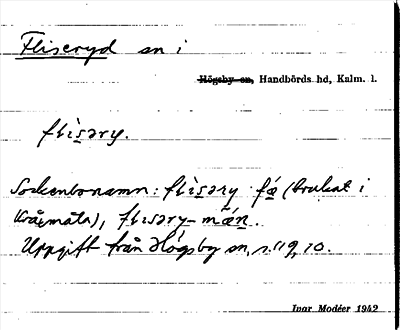 Fliseryd sn i
Högsby sn, Handbörds hd, Kalm. l.
fli̱səry.
Sockenbonamn: fli̱səry fǽ (brukat i
Kråksmåla), flisəry-mǽn.
Uppgift från Högsby sn, s. 19, 10.
Ivar Modéer 1942